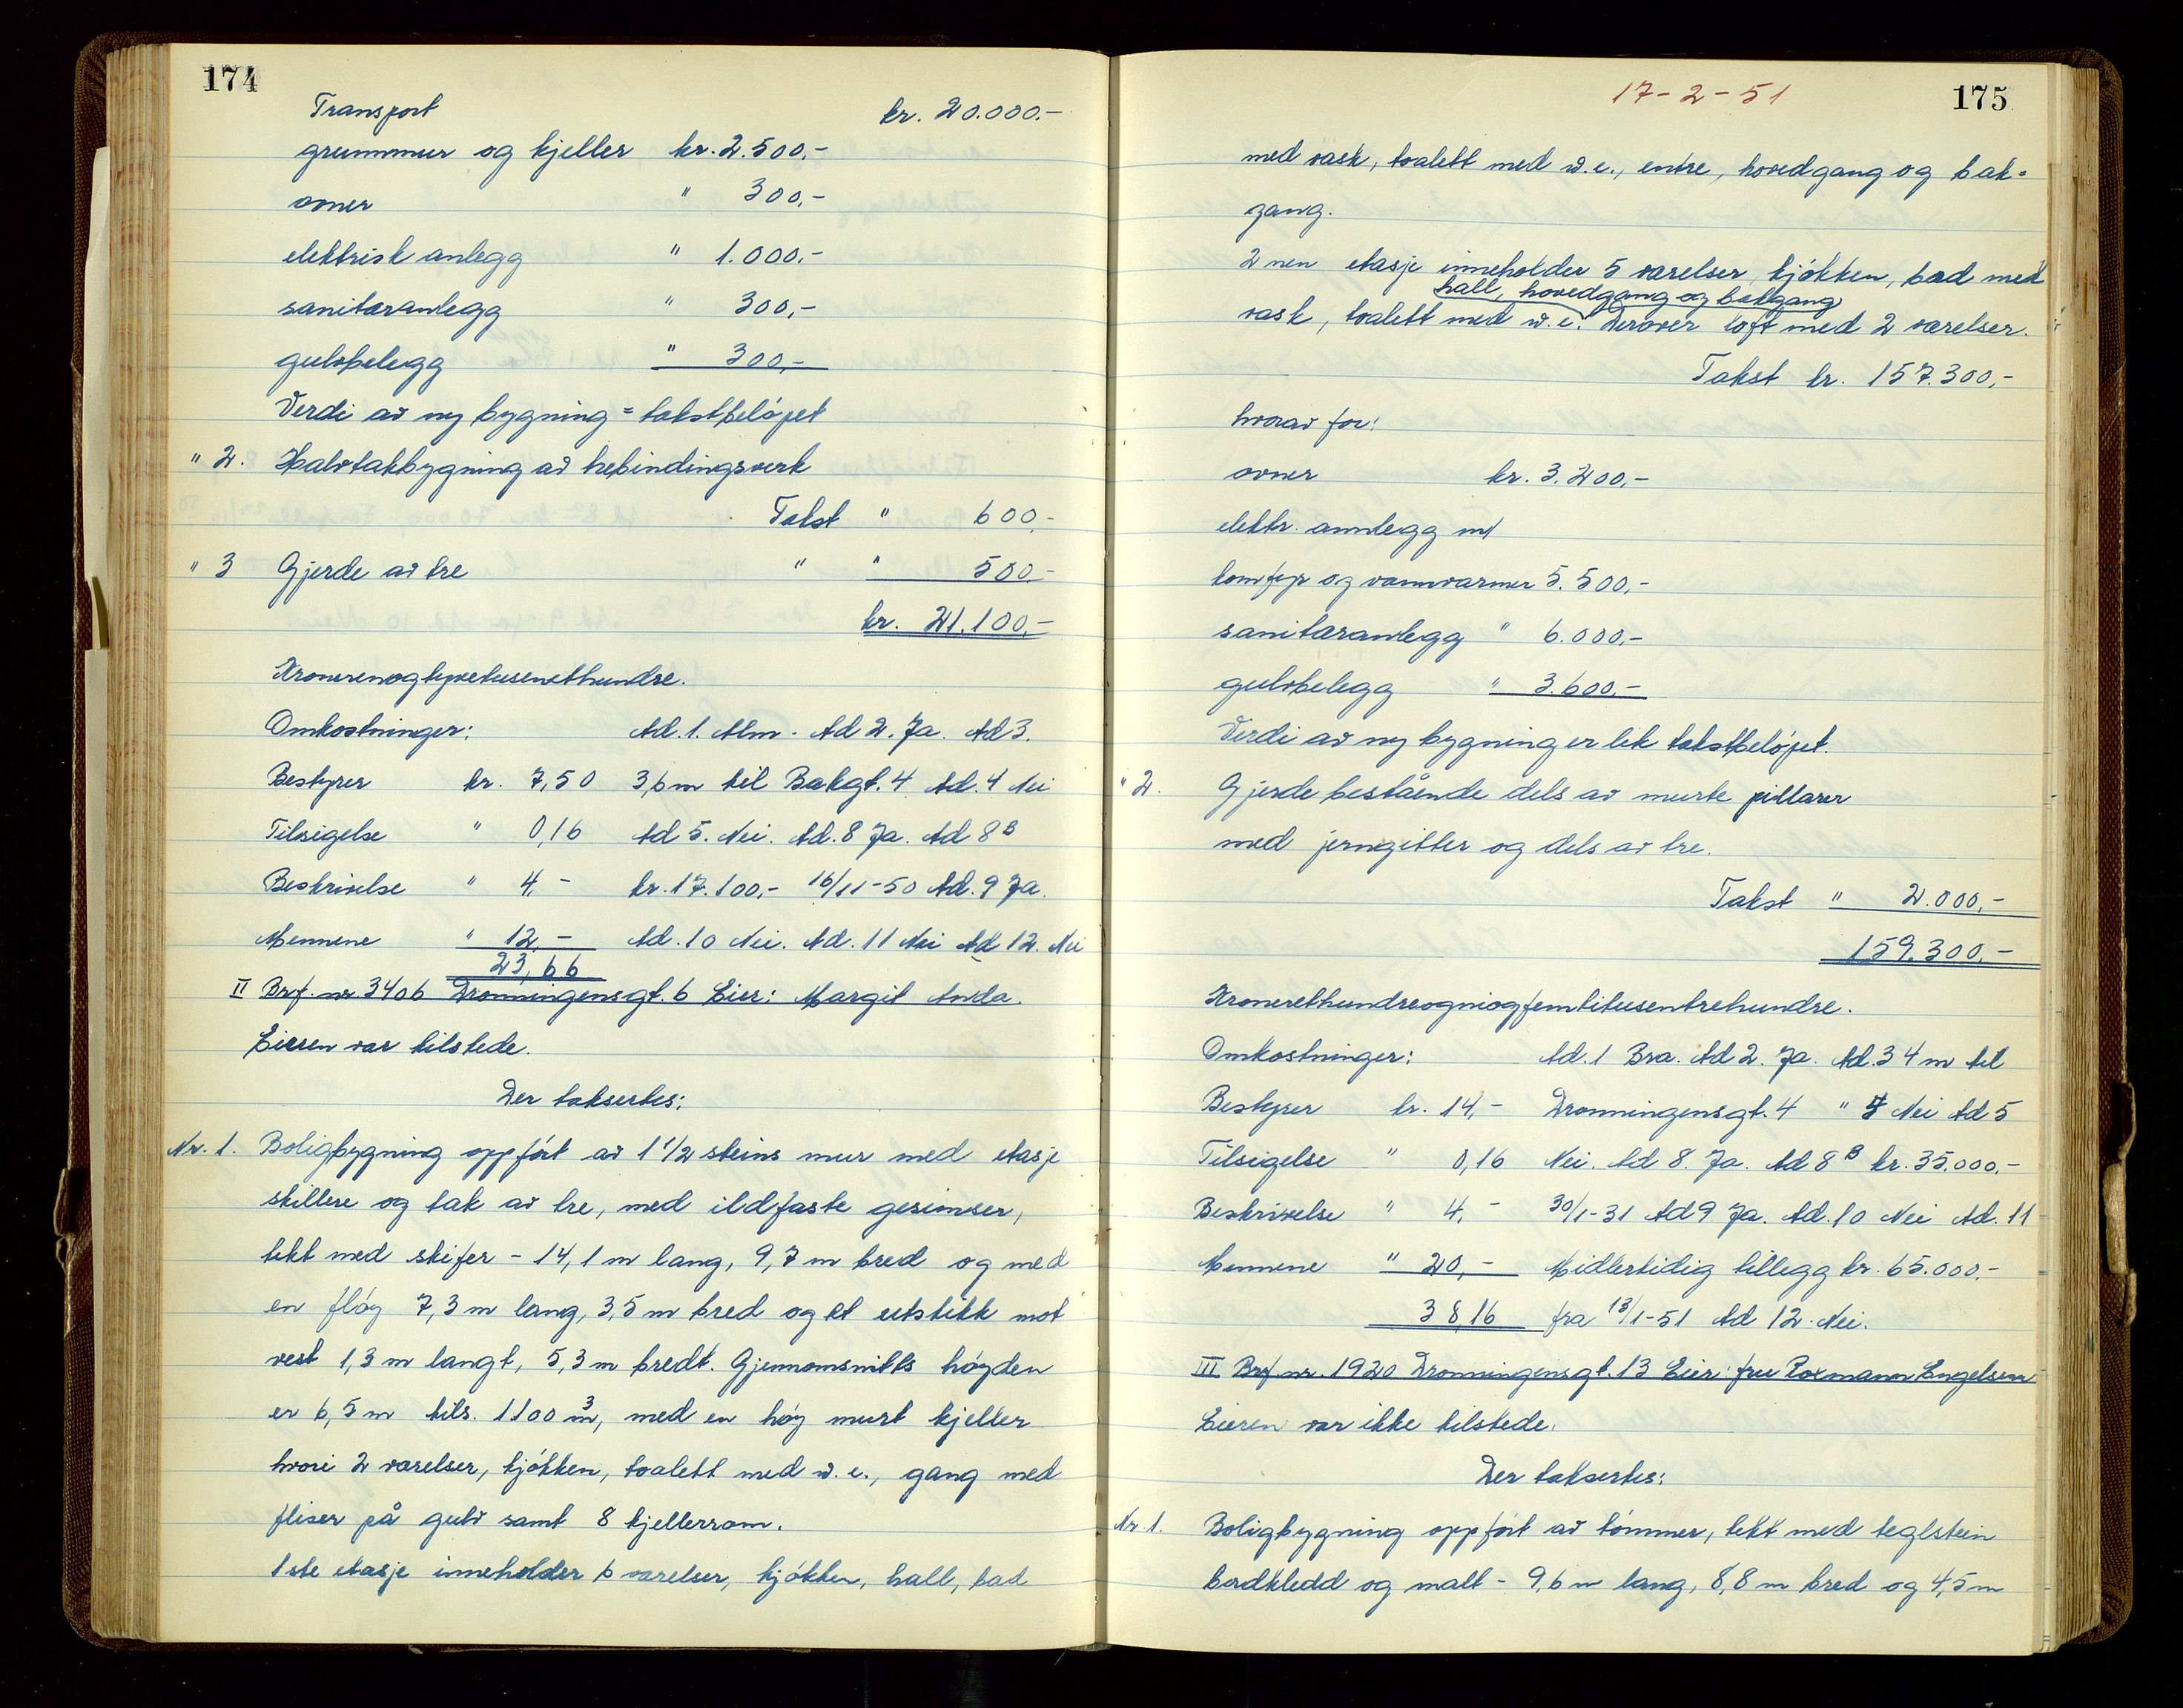 174
Transport kr. 20.000.-
grunnmur og kjeller kr. 2.500,-
ovner " 300,-
elektrisk anlegg " 1.000,-
sanitæranlegg " 300,-
gulvbelegg " 300,-
Verdi av ny bygning = takstbeløpet
" 2. Halvtakbygning av trebindingsverk
Takst " 600,-
" 3 Gjerde av tre " " 500,-
kr. 21.100,-
Kronerenogtyvetusenethundre.
Omkostninger: Ad. 1. Alm. Ad 2. Ja. Ad 3.
Bestyrer kr. 7,50 3,6 m til Bakgt. 4 Ad. 4 Nei
Tilsigelse " 0,16 Ad 5. Nei. Ad. 8 Ja. Ad 8 B
Beskrivelse " 4,- kr. 17.100,- 16/11-50 Ad. 9 Ja.
Mennene " 12,- Ad. 10 Nei. Ad. 11 Nei Ad 12. Nei
23,66
II Brf. nr. 3406 Dronningensgt. 6 Eier: Margit Anda.
Eieren var tilstede.
Der taksertes:
Nr. 1. Boligbygning oppført av 1 1/2 steins mur med etasje
skillere og tak av tre, med ildfaste gesimser,
tekt med skifer - 14,1 m lang, 9,7 m bred og med
en fløy 7,3 m lang, 3,5 m bred og et utstikk mot
vest 1,3 m langt, 5,3 m bredt. Gjennomsnitts høyden
er 6,5 m tils. 1100 m3, med en høy murt kjeller
hvori 2 værelser, kjøkken, toalett med w.c., gang med
fliser på gulv samt 8 kjellerrom.
1ste etasje inneholder 6 værelser, kjøkken, hall, bad
17-2-51 175
med vask, toalett med w.c., entre, hovedgang og bak=
gang.
2 nen etasje inneholder 5 værelser, kjøkken, bad med
hall, hovedgang og bakgang
vask, toalett med w.c. Derover loft med 2 værelser.
Takst kr. 157.300,-
hvorav for:
ovner kr. 3.200,-
elektr. annlegg m/
komfyr og vannvarmer 5.500,-
sanitæranlegg " 6.000,-
gulvbelegg " 3.600,-
Verdi av ny bygning er lik takstbeløpet.
" 2. Gjerde bestående dels av murte pillarer
med jerngitter og dels av tre.
Takst " 2.000,-
159.300,-
Kronerethundreogniogfemtitusentrehundre.
Omkostninger: Ad. 1 Bra. Ad 2. Ja. Ad. 3 4 m til
Bestyrer kr. 14,- Dronningensgt. 4 " 4 Nei Ad 5
Tilsigelse " 0,16 Nei. Ad 8. Ja. Ad 8 B kr. 35.000,-
Beskrivelse " 4,- 30/1-31 Ad 9 Ja. Ad. 10 Nei Ad. 11
Mennene " 20,- Midlertidig tillegg kr. 65.000,-
38,16 fra 13/1-51 Ad 12. Nei.
III Brf. nr. 1920 Dronningensgt. 13 Eier: fru Engelsen
Eieren var ikke tilstede.
Der taksertes:
Nr 1. Boligbygning oppført av tømmer, tekt med teglstein
bordkledd og malt - 9,6 m lang, 8,8 m bred og 4,5 m